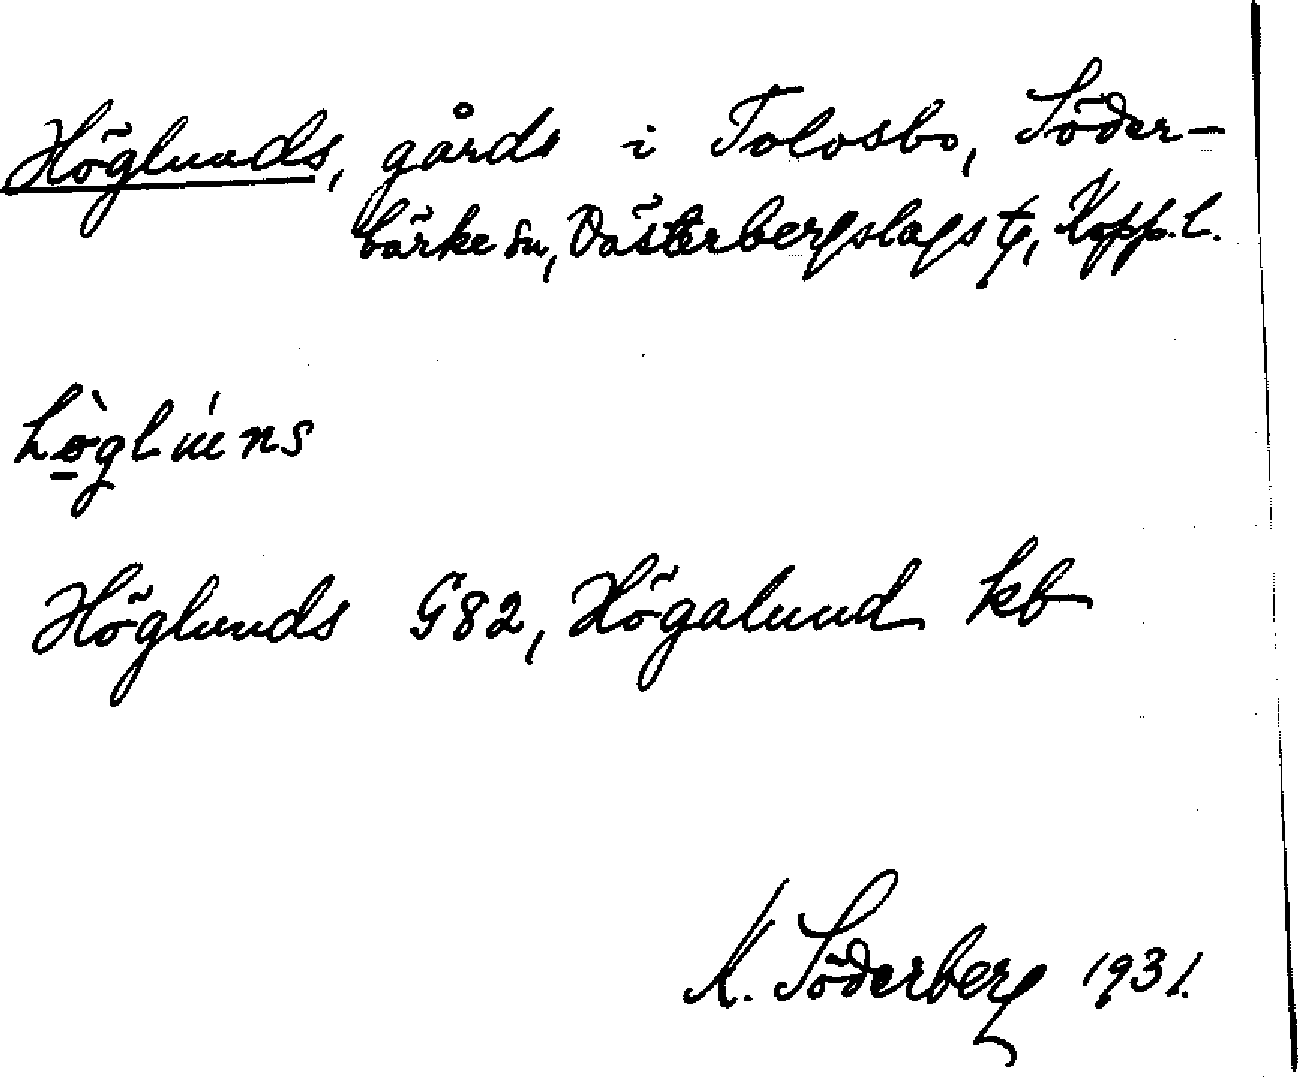 Höglunds, gårds i Tolosbo, Söder-
bärke sn, Västerbergslags tg, Kopp.l.
Höglunds G82, Högalund kb
K. Söderberg 1931.